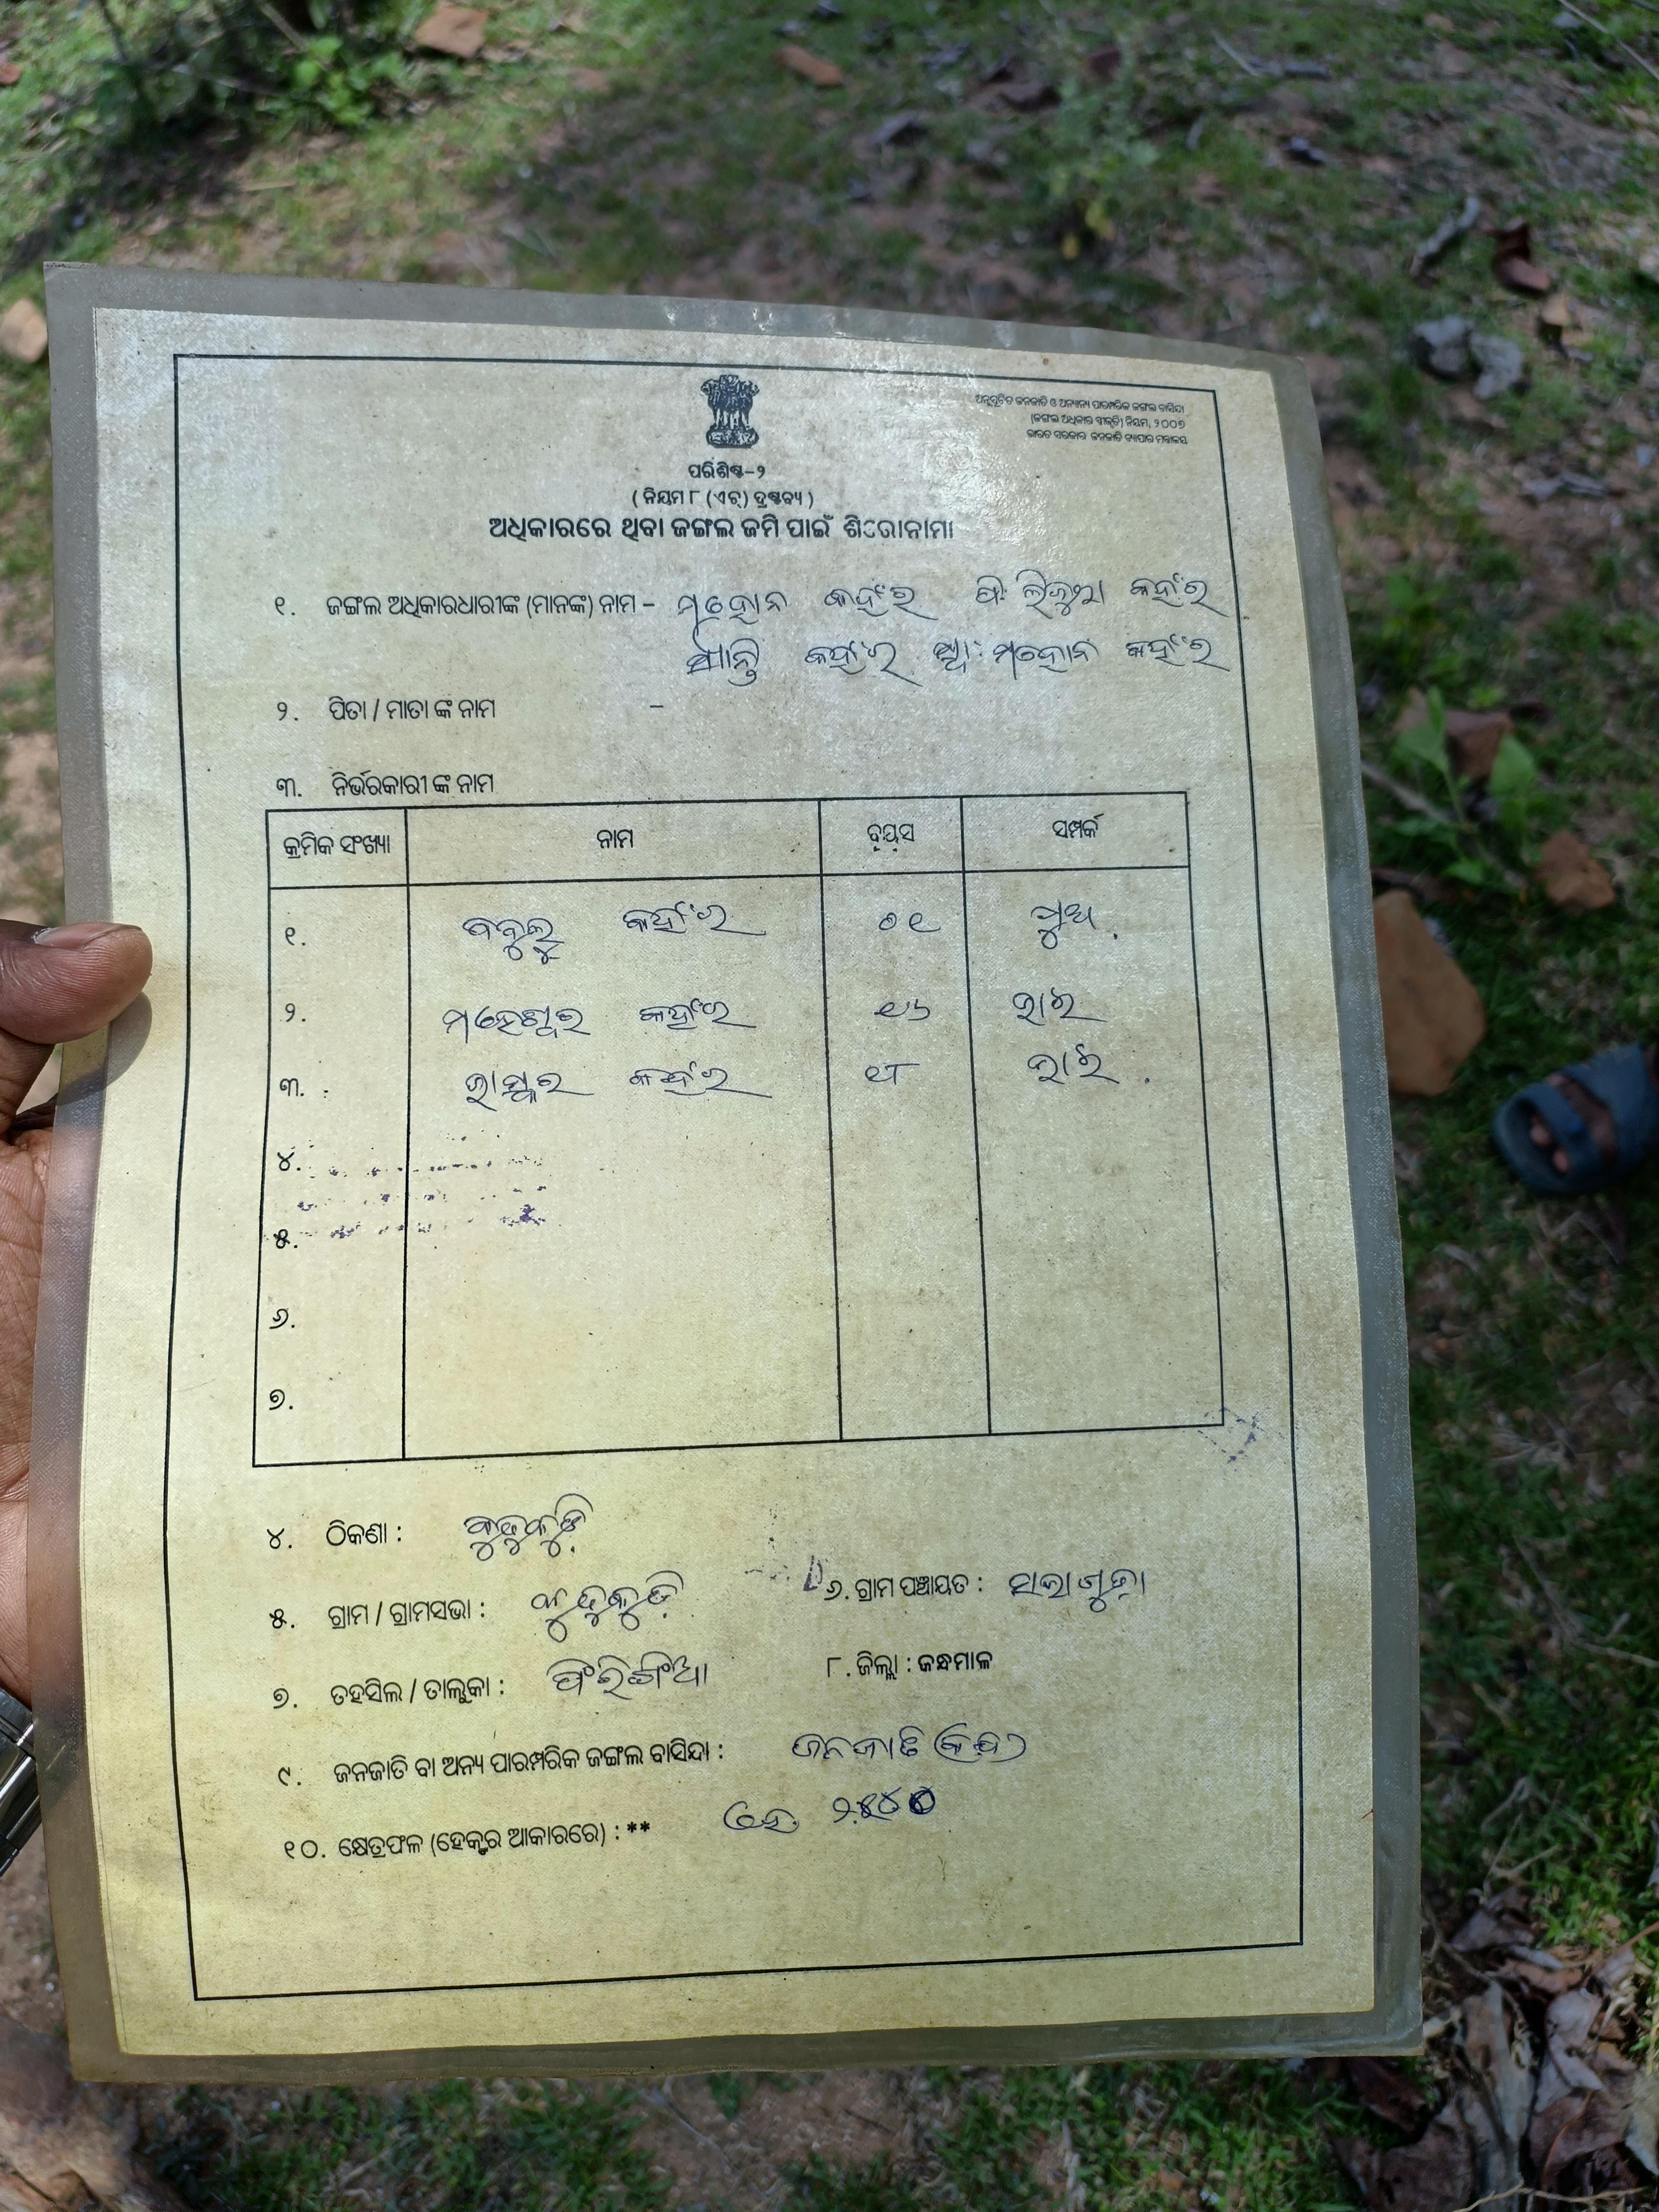 ଅନୁସୂଚିତ ଜନଜାତି ଓ ଅନ୍ୟାନ୍ୟ ପାରମ୍ପରିକ ଜଙ୍ଗଲ ବାସିନ୍ଦା
(ଜଙ୍ଗଲ ଅଧିକାର ସ୍ୱୀକୃତି) ନିୟମ, ୨୦୦୭
ଭାରତ ସରକାର ଜନଜାତି ବ୍ୟାପାର ମନ୍ତ୍ରାଳୟ
ପରିଶିଷ୍ଟ-୨
( ନିୟମ ୮ (ଏଚ୍) ଦ୍ରଷ୍ଟବ୍ୟ )
ଅଧିକାରରେ ଥିବା ଜଙ୍ଗଲ ଜମି ପାଇଁ ଶିରୋନାମା
୧. ଜଙ୍ଗଲ ଅଧିକାରଧାରୀଙ୍କ (ମାନଙ୍କ) ନାମ - ମହୋନ କହଁର ପି: କହଁର
ଶାନ୍ତି କହଁର ସ୍ୱା: ମହୋନ କହଁର
୨. ପିତା / ମାତା ଙ୍କ ନାମ -
୩. ନିର୍ଭରକାରୀ ଙ୍କ ନାମ
କ୍ରମିକ ସଂଖ୍ୟା ନାମ ବୟସ ସମ୍ପର୍କ
୧. ବବୁଲୁ କହଁର ୦୧ ପୁଅ
୨. ମହେଶ୍ୱର କହଁର ୧୬ ଭାଇ
୩. ଭାସ୍କର କହଁର ୧୮ ଭାଇ
୪.
୫.
୬.
୭.
୪. ଠିକଣା : କୁଢୁକୁଡି
୫. ଗ୍ରାମ / ଗ୍ରାମସଭା : କୁଢୁକୁଡି ୬. ଗ୍ରାମ ପଞ୍ଚାୟତ : ସାଲାଗୁଡ଼ା
୭. ତହସିଲ / ତାଲୁକା : ଫିରିଙ୍ଗିଆ ୮. ଜିଲ୍ଲା : କନ୍ଧମାଳ
୯. ଜନଜାତି ବା ଅନ୍ୟ ପାରମ୍ପରିକ ଜଙ୍ଗଲ ବାସିନ୍ଦା : ଜନଜାତି (କନ୍ଧ)
୧୦. କ୍ଷେତ୍ରଫଳ (ହେକ୍ଟର ଆକାରରେ) : ** ହେ.